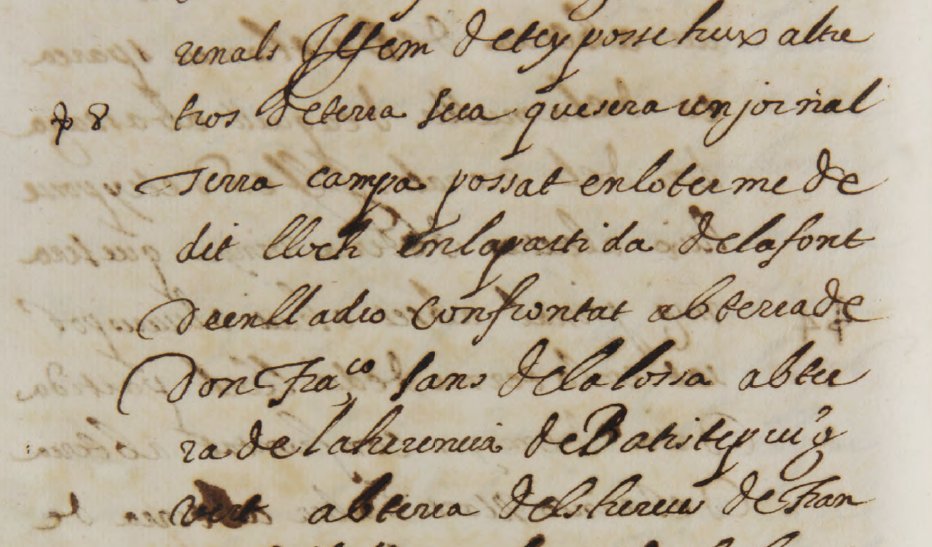 renals Ittem dete y posseheix altre
p 8 tros de terra seca que sera un jornal
Terra campa possat en lo terme de
dit lloch en la partida de la font
de enllado confrontat ab terra de
Don Fra.co Sans de la Lossa ab ter
ra de la herencia de Batiste puig
vert ab terra dels hereus de Fran